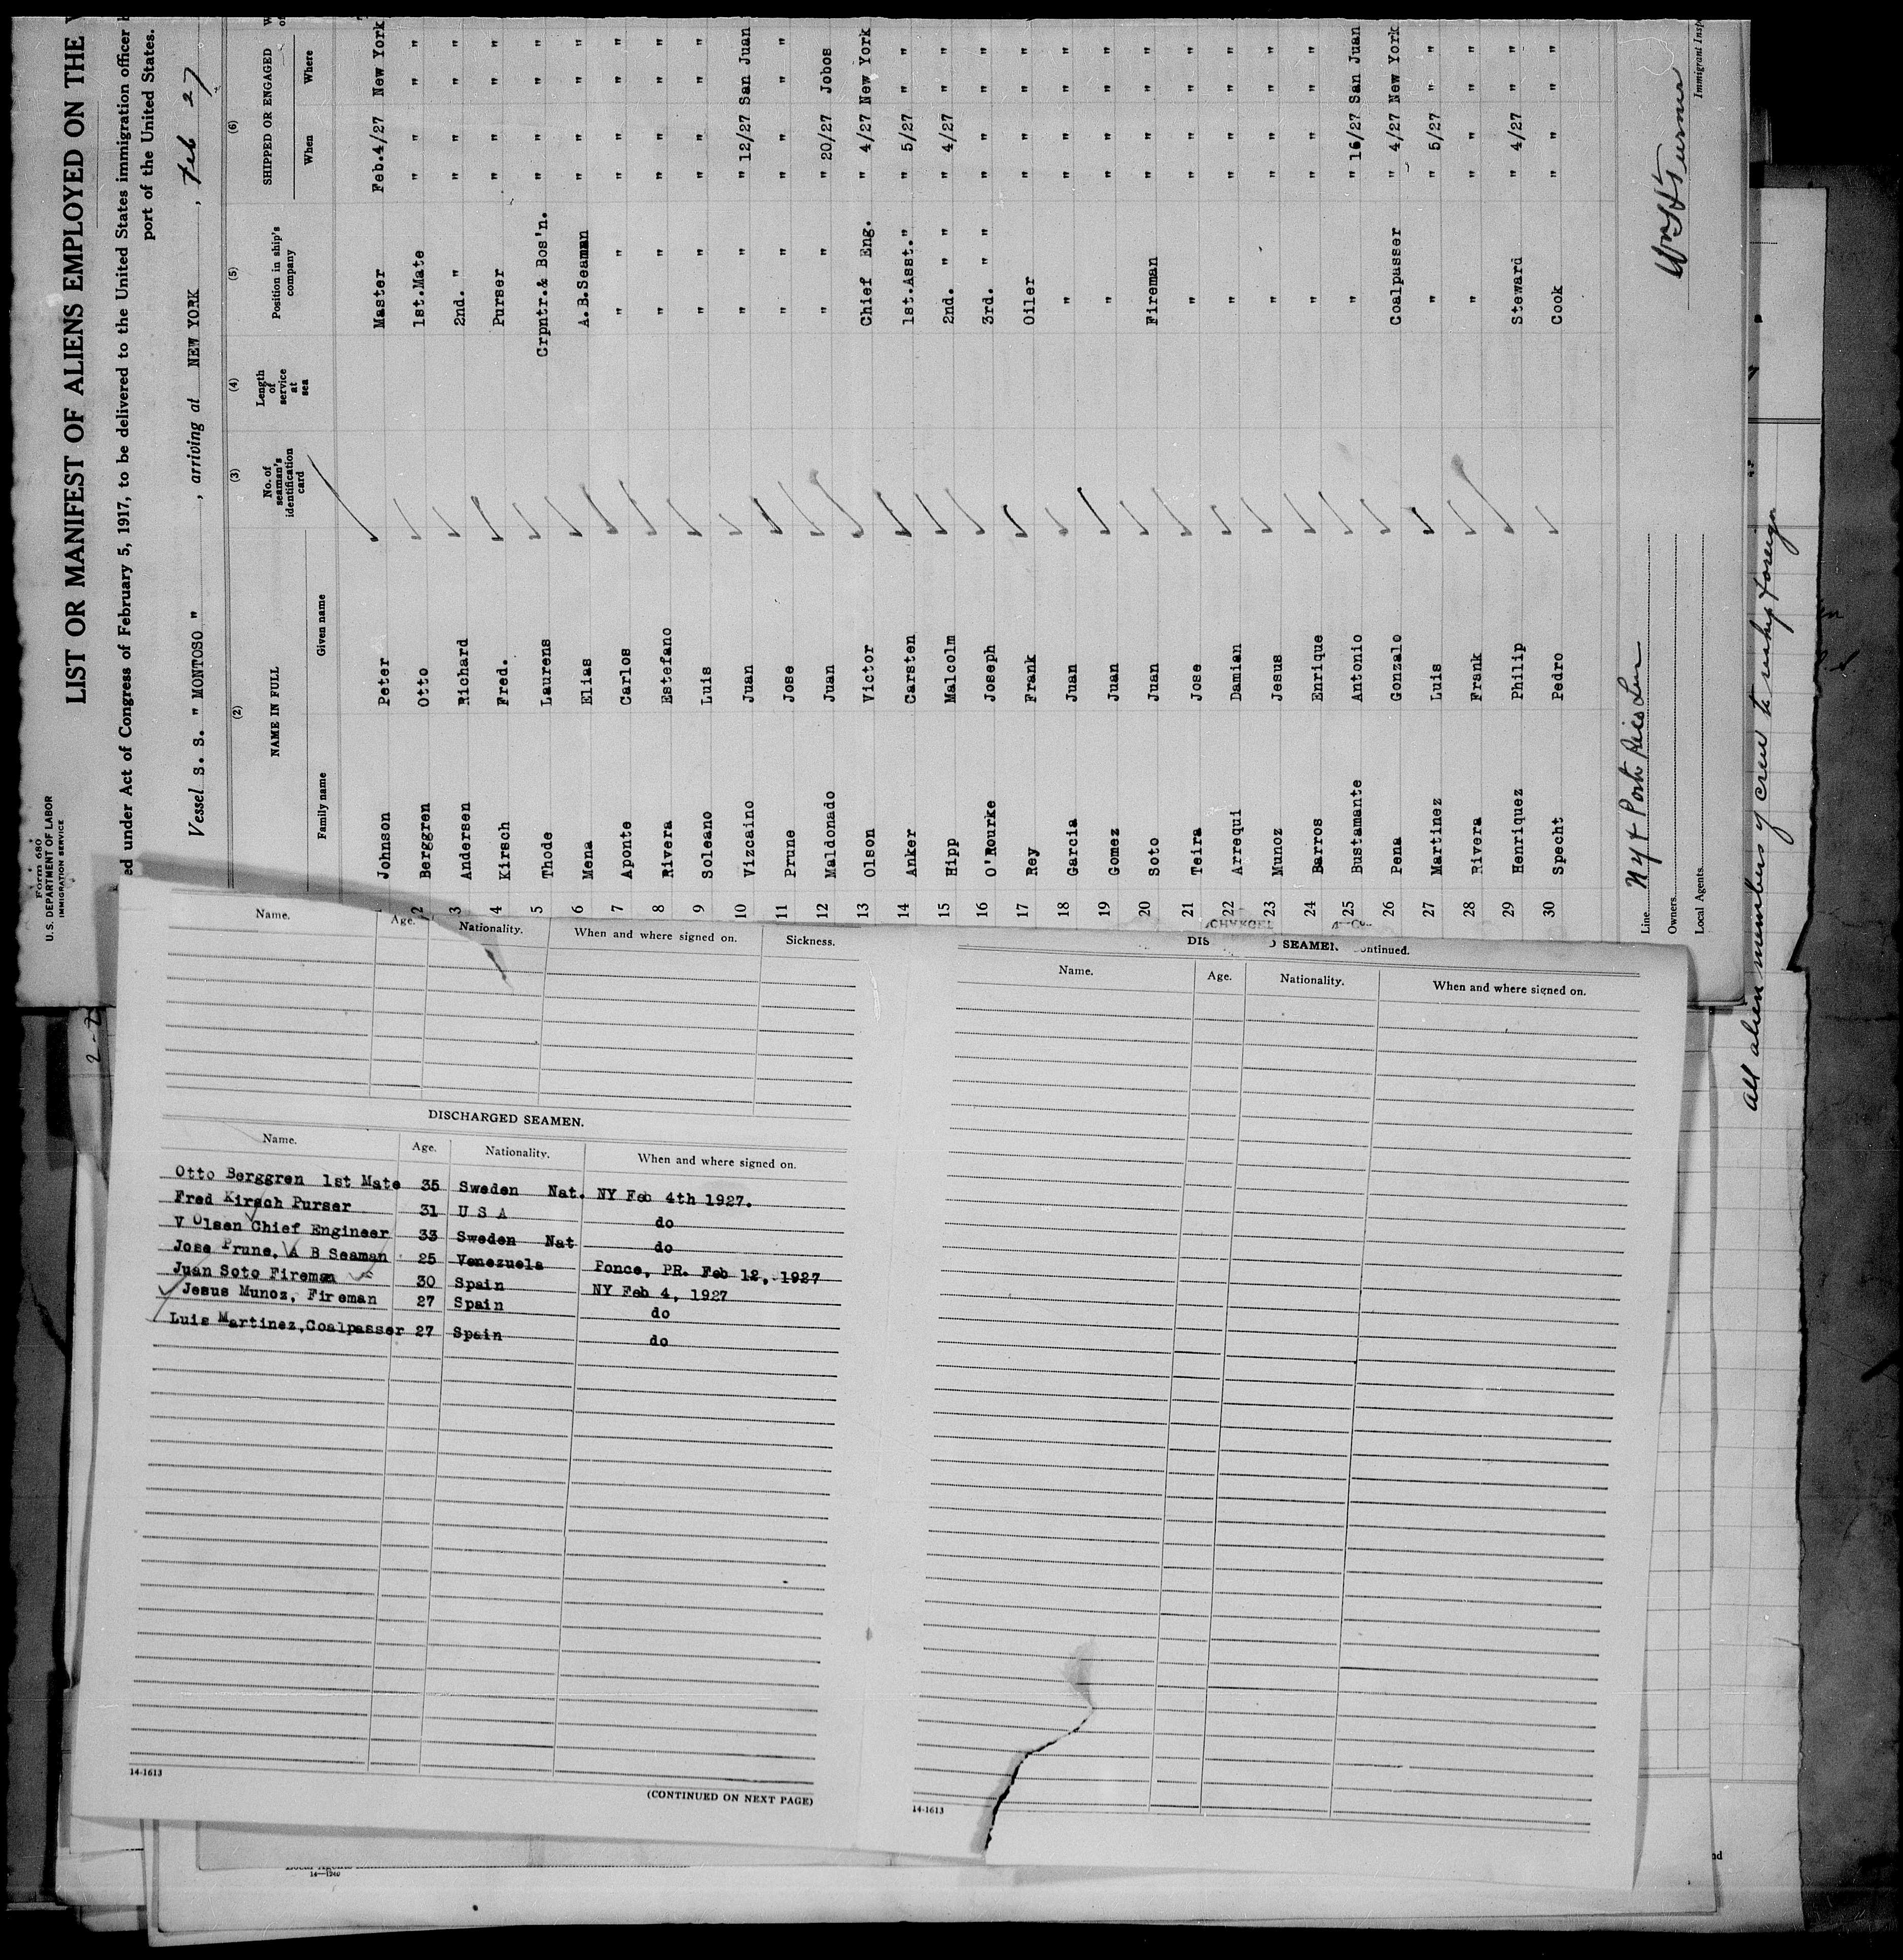 Form 680
U.S. DEPARTMENT OF LABOR
IMMIGRATION SERVICE
LIST OR MANIFEST OF ALIENS EMPLOYED ON THE
ed under Act of Congress of February 5, 1917, to be delivered to the United States immigration officer
port of the United States.
Vessel S. S. " MONTOSO " , arriving at NEW YORK , Feb 27
(2) (3) (4) (5) (6)
NAME IN FULL No. of seaman's identification card Length of service at sea Position in ship's company SHIPPED OR ENGAGED
Family name Given name When Where
1 Johnson Peter Master Feb.4/27 New York
2 Berggren Otto 1st.Mate " " " "
3 Andersen Richard 2nd. " " " " "
4 Kirsch Fred. Purser " " " "
5 Thode Laurens Crpntr.& Bos'n. " " " "
6 Mena Elias A.B.Seaman " " " "
7 Aponte Carlos " " " " " "
8 Rivera Estefano " " " " " "
9 Soleano Luis " " " " " "
10 Vizcaino Juan " " " 12/27 San Juan
11 Prune Jose " " " " " "
12 Maldonado Juan " " " 20/27 Jobos
13 Olson Victor Chief Eng. " 4/27 New York
14 Anker Carsten 1st.Asst." " 5/27 " "
15 Hipp Malcolm 2nd. " " " 4/27 " "
16 O'Rourke Joseph 3rd. " " " " " "
17 Rey Frank Oiler " " " "
18 Garcia Juan " " " " "
19 Gomez Juan " " " " "
20 Soto Juan Fireman " " " "
21 Teira Jose " " " " "
22 Arrequi Damian " " " " "
23 Munoz Jesus " " " " "
24 Barros Enrique " " " " "
25 Bustamante Antonio " " 16/27 San Juan
26 Pena Gonzalo Coalpasser " 4/27 New York
27 Martinez Luis " " 5/27 " "
28 Rivera Frank " " " " "
29 Henriquez Philip Steward " 4/27 " "
30 Specht Pedro Cook " " " "
Line N Y & Porto Rico Line
Owners
Local Agents
Immigrant Insp
All alien members of crew to reship foreign
Name. Age. Nationality. When and where signed on. Sickness.
DISCHARGED SEAMEN.
Name. Age. Nationality. When and where signed on.
Otto Berggren 1st Mate 35 Sweden Nat. NY Feb 4th 1927.
Fred Kirsch Purser 31 U S A do
V Olsen Chief Engineer 33 Sweden Nat do
Jose Prune, A B Seaman 25 Venezuela Ponce, PR. Feb 12, 1927
Juan Soto Fireman 30 Spain NY Feb 4, 1927
Jesus Munoz, Fireman 27 Spain do
Luis Martinez, Coalpasser 27 Spain do
14-1613
(CONTINUED ON NEXT PAGE)
DIS D SEAMEN ontinued.
Name. Age. Nationality. When and where signed on.
14-1613
14-1240